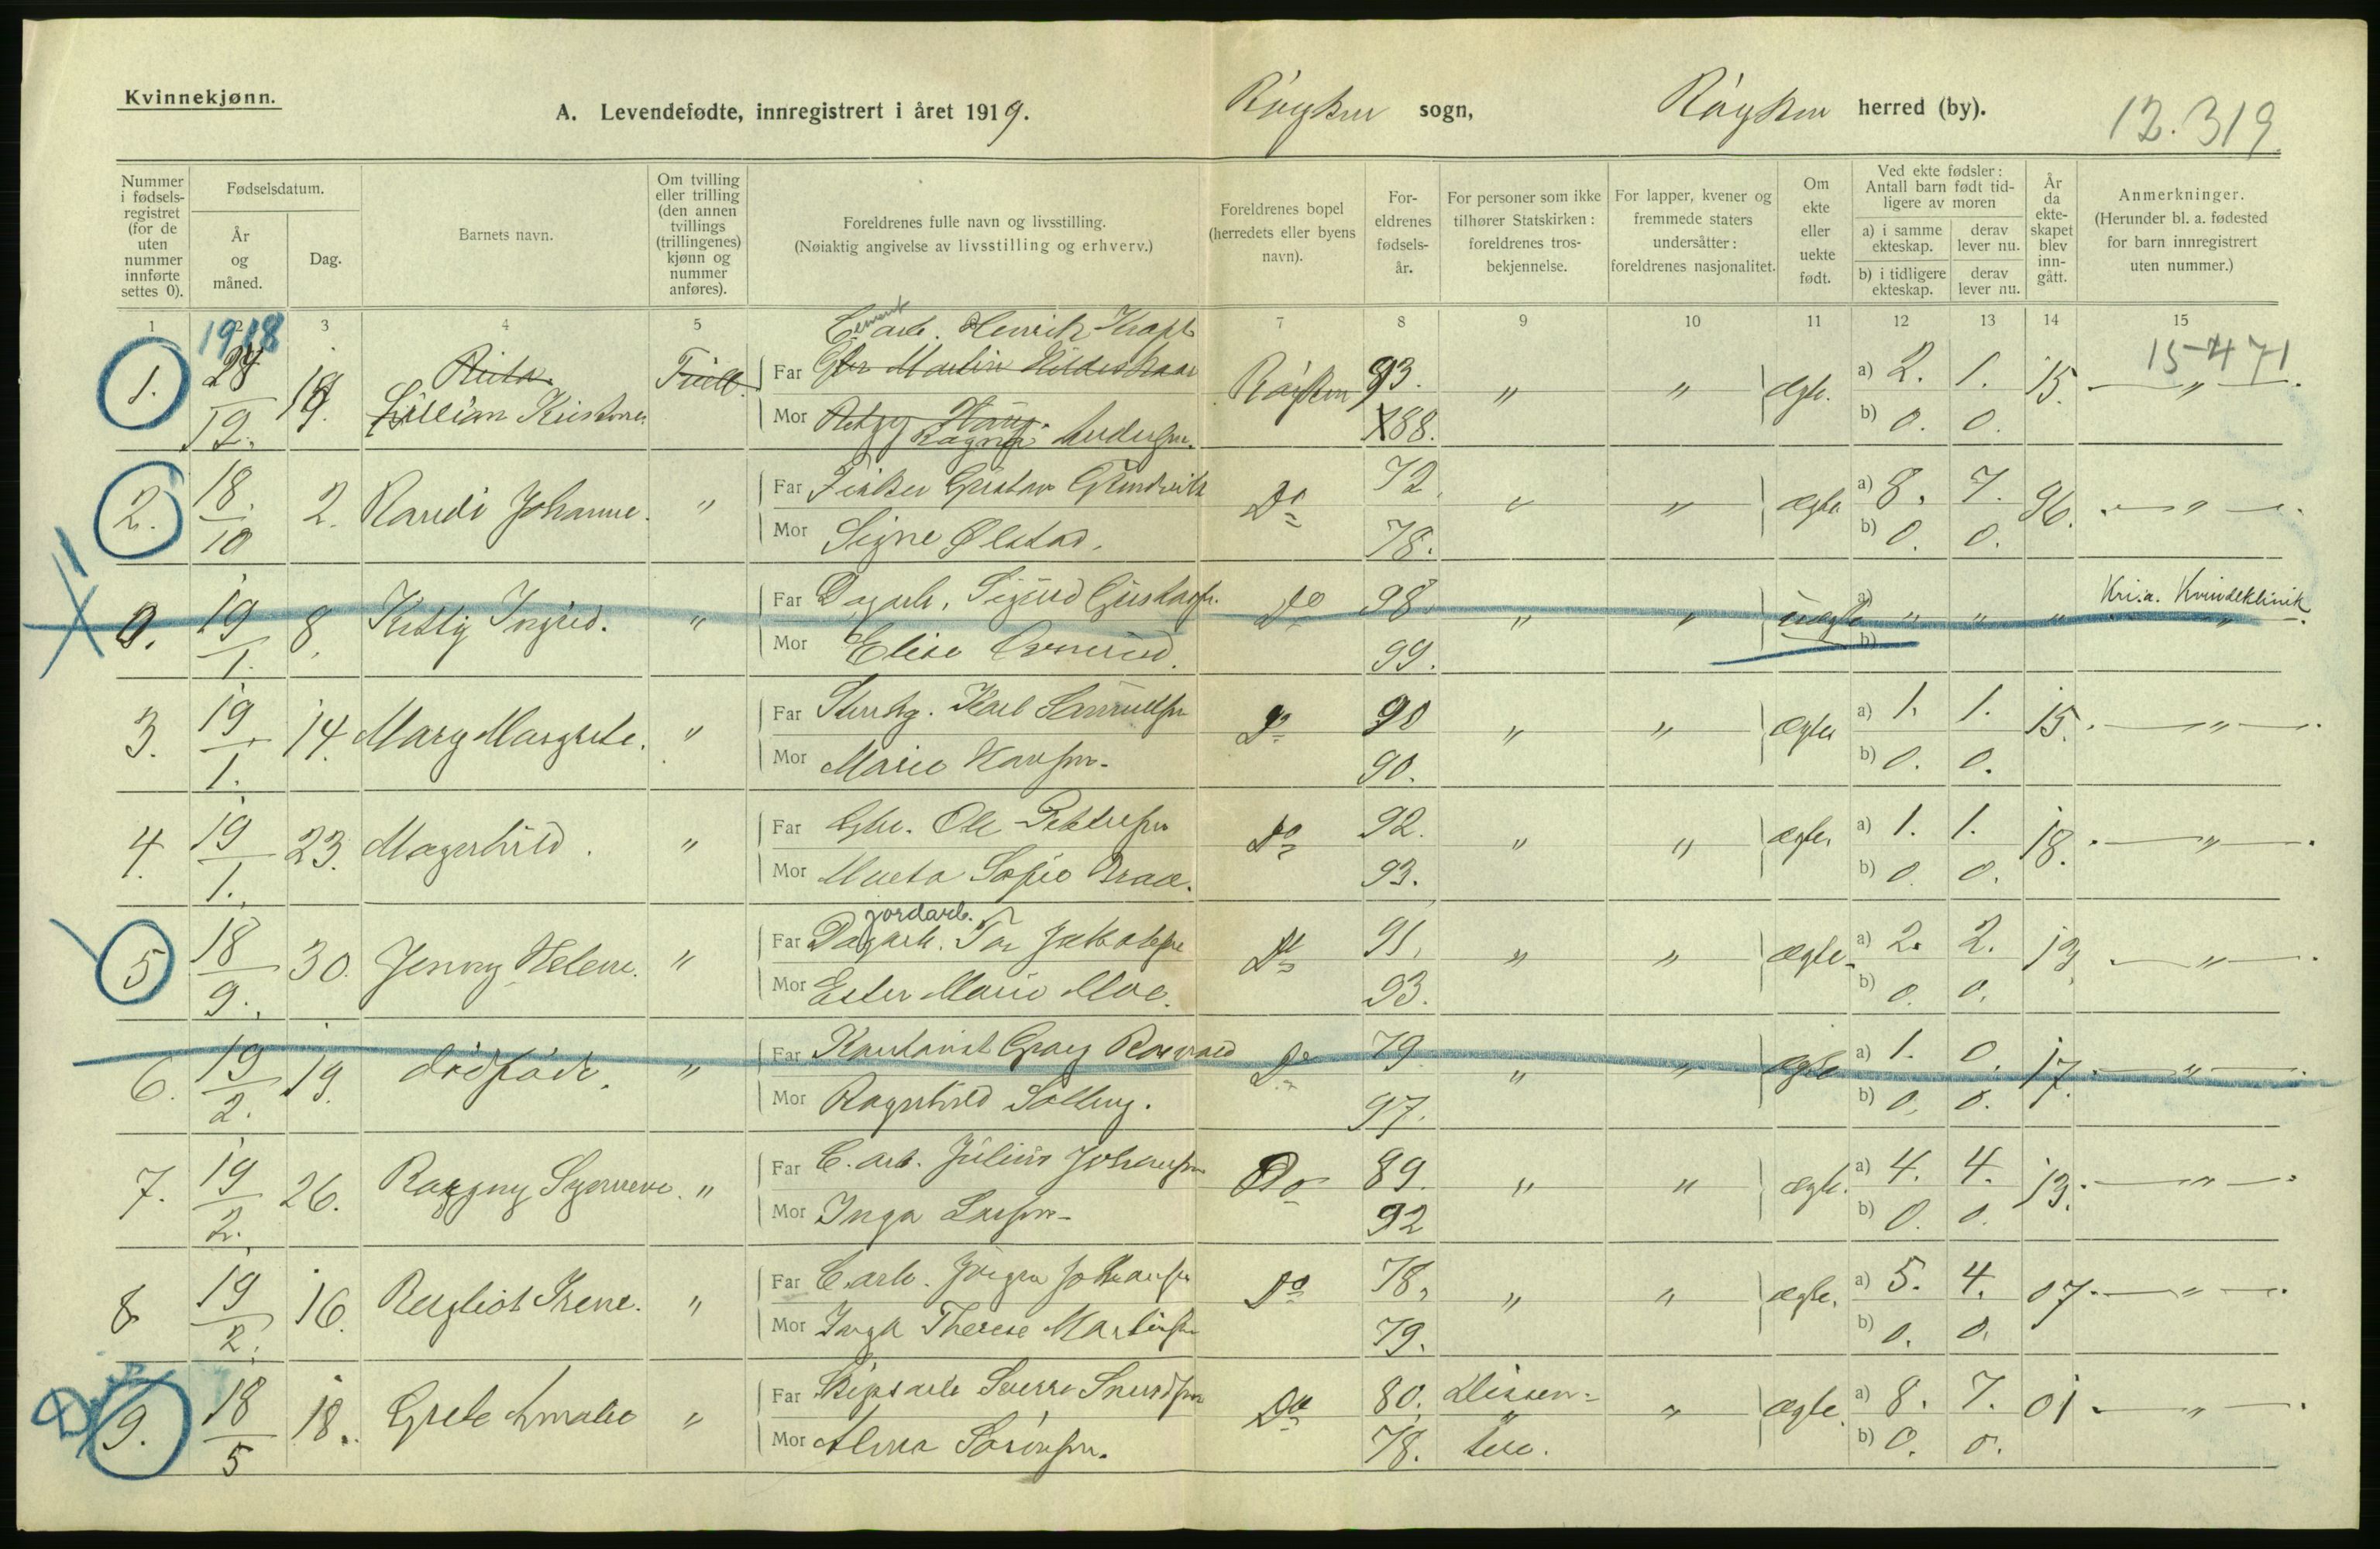 Kvinnekjønn.
A. Levendefødte, innregistrert i året 1919. Røyken sogn, Røyken herred (by). 12.319
Nummer i fødsels-registret (for de uten nummer innførte settes 0).
Fødselsdatum.
År og måned.
Dag.
Barnets navn.
Om tvilling eller trilling (den annen tvillings (trillingenes) kjønn og nummer anføres).
Foreldrenes fulle navn og livsstilling.
(Nøiaktig angivelse av livsstilling og erhverv.)
Foreldrenes bopel (herredets eller byens navn).
For-eldrenes fødsels-år.
For personer som ikke tilhører Statskirken: foreldrenes tros-bekjennelse.
For lapper, kvener og fremmede staters undersåtter: foreldrenes nasjonalitet.
Om ekte eller uekte født.
Ved ekte fødsler: Antall barn født tid-ligere av moren
a) i samme ekteskap.
derav lever nu.
b) i tidligere ekteskap.
derav lever nu.
År da ekte-skapet blev inn-gått.
Anmerkninger.
(Herunder bl. a. fødested for barn innregistrert uten nummer.)
1 2 3 4 5 7 8 9 10 11 12 13 14 15
1918
15471
1. 12. 19. Lillian Far Henrik Røyken 93. " " ægte. a) 2. 1. 15. "
Mor Ragna Andersen. 88. b) 0. 0.
2. 18. 10 2. Randi Johanne. " Far Fisker Gustav Do 72. " " ægte a) 8. 7. 96. "
Mor Signe Ølstad. 78. b) 0. 0.
0. 19 1. 8. Kitty Ingrid. " Far Dagarb. Sigurd Gustavsen. Do 98. " " uægte a) " " " Kri.a. Kvindeklinik "
Mor Elise 99. b)
3. 19 1. 14. Mary Margrete. " Far Karl Samuelsen Do 90 " " ægte a) 1. 1. 15. "
Mor Marie Hansen. 90. b) 0. 0.
4. 19 1. 23. Magnhild. " Far Gbr. Ole Pettersen Do 92. " " ægte. a) 1. 1. 18. "
Mor Marta Sofie 93. b) 0. 0.
jordarb.
5 18 9. 30. Jenny Helene. " Far Dagarb. Tor Jakobsen Do 91. " " ægte. a) 2. 2. 13 "
Mor Ester Marie Moe. 93. b) 0. 0.
6. 19 2. 19. dødfødt. " Far Kontorist Georg Do 79 " " ægte a) 1. 0 17. "
Mor Ragnhild Solberg. 97. b) 0. 0.
7. 19 2. 26. Ragny Synnøve. " Far C. arb. Julius Johansen Do 89. " " ægte. a) 4. 4. 13. "
Mor Inga Larsen 92 b) 0. 0.
8 19 2. 16. Bergliot Irene. " Far C. arb. Jørgen Johansen Do 78. " " ægte. a) 5. 4. 07. "
Mor Inga Therese Martinsen 79. b) 0. 0.
9. 18 5 18. Grete Amalie " Far Skipsarb Sverre Do 80. Dissen- " ægte. a) 8. 7. 01 "
Mor Alma Sørensen. 78. ter. b) 0. 0.